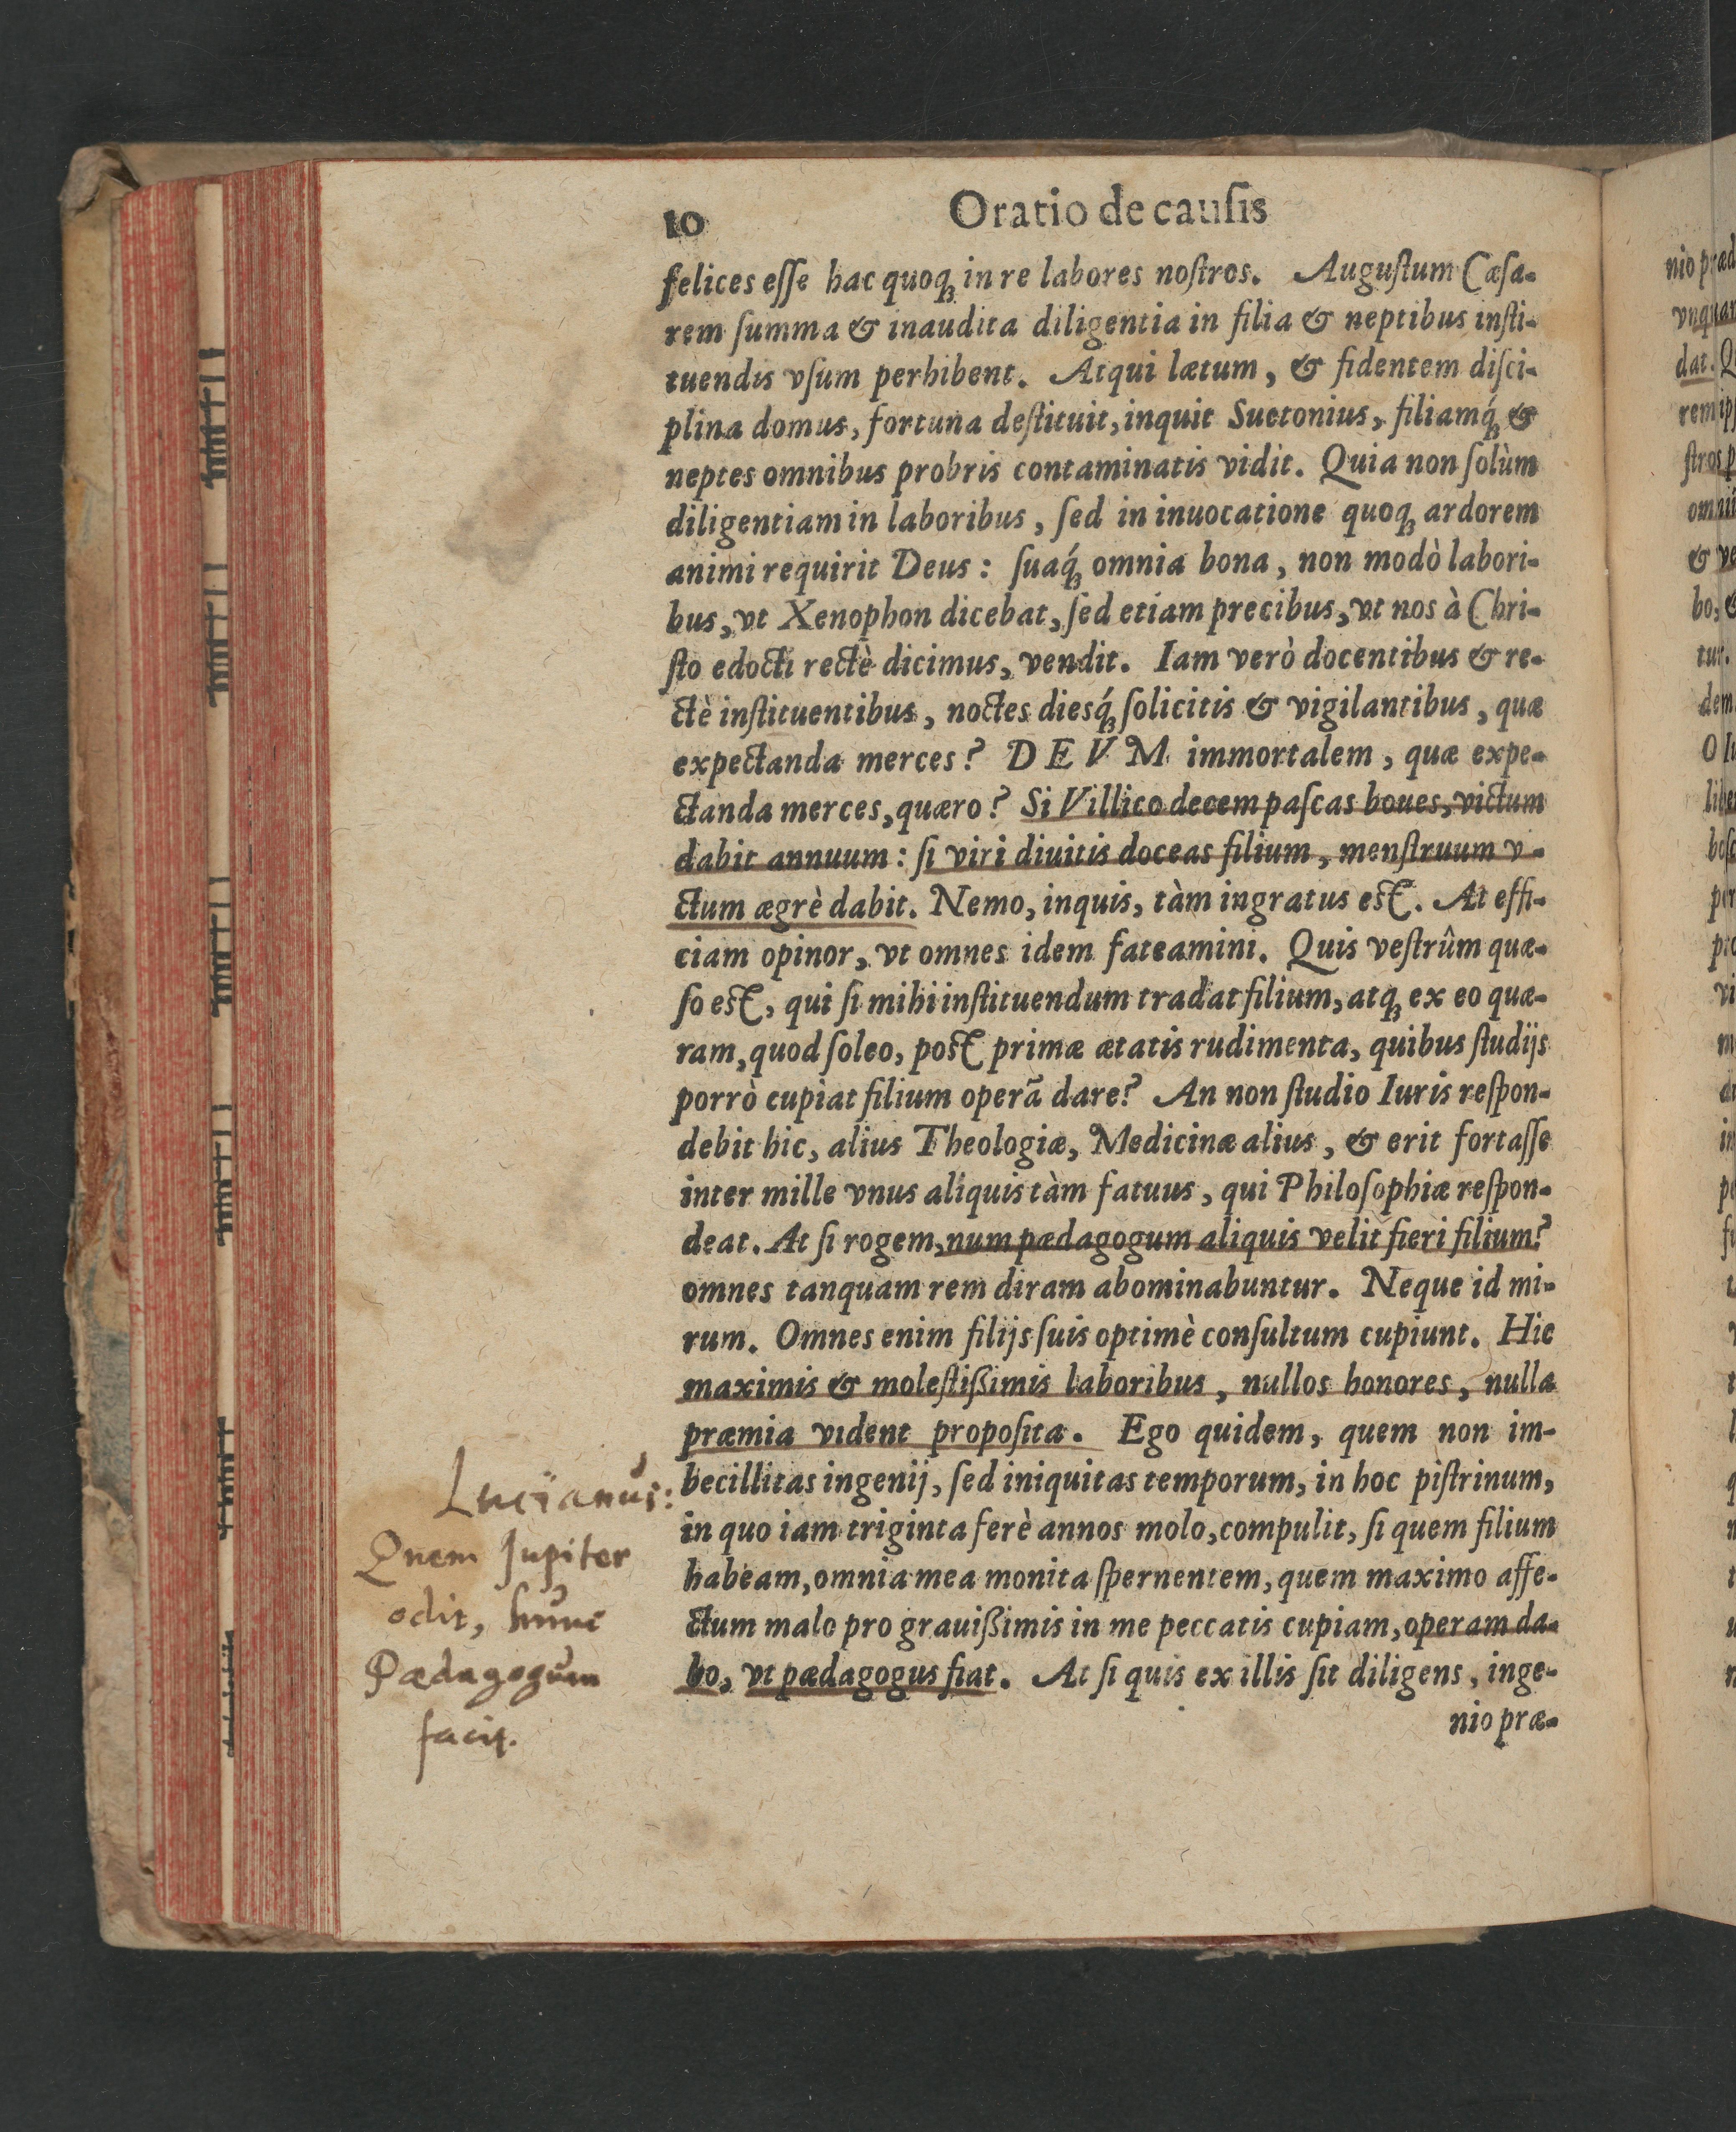 10 Oratio de cauſis
felices eſſe hac quoqꝫ in re labores noſtros. Auguſtum Cæſa-
rem ſumma & inaudita diligentia in filia & neptibus inſti-
tuendis vſum perhibent. Atqui lætum, & fidentem diſci-
plina domus, fortuna deſtituit, inquit Suetonius, filiamq́ꝫ &
neptes omnibus probris contaminatis vidit. Quia non ſolùm
diligentiam in laboribus, ſed in inuocatione quoqꝫ ardorem
animi requirit Deus: ſuaq́ꝫ omnia bona, non modò labori-
bus, vt Xenophon dicebat, ſed etiam precibus, vt nos à Chri-
ſto edocti rectè dicimus, vendit. Iam verò docentibus & re-
ctè inſtituentibus, noctes diesq́ꝫ ſolicitis & vigilantibus, quæ
expectanda merces? DEVM immortalem, quæ expe-
ctanda merces, quæro? Si Villico decem paſcas boues, victum
dabit annuum: ſi viri diuitis doceas filium, menſtruum v-
ctum ægrè dabit. Nemo, inquis, tàm ingratus est. At effi-
ciam opinor, vt omnes idem fateamini. Quis veſtrûm quæ-
ſo est, qui ſi mihi inſtituendum tradat filium, atqꝫ ex eo quæ-
ram, quod ſoleo, post primæ ætatis rudimenta, quibus ſtudijs
porrò cupiat filium operã dare? An non ſtudio Iuris reſpon-
debit hic, alius Theologiæ, Medicinæ alius, & erit fortaſſe
inter mille vnus aliquis tàm fatuus, qui Philoſophiæ reſpon-
deat. At ſi rogem, num pædagogum aliquis velit fieri filium?
omnes tanquam rem diram abominabuntur. Neque id mi-
rum. Omnes enim filijs ſuis optimè conſultum cupiunt. Hic
maximis & moleſtißimis laboribus, nullos honores, nulla
præmia vident propoſita. Ego quidem, quem non im-
becillitas ingenij, ſed iniquitas temporum, in hoc piſtrinum,
in quo iam triginta ferè annos molo, compulit, ſi quem filium
habeam, omnia mea monita ſpernentem, quem maximo affe-
ctum malo pro grauißimis in me peccatis cupiam, operam da-
bo, vt pædagogus fiat. At ſi quis ex illis ſit diligens, inge-
nio præ-
Lucianus:
Quem Jupiter
odit, hunc
Pædagogum
facit.
nio præd
dat.